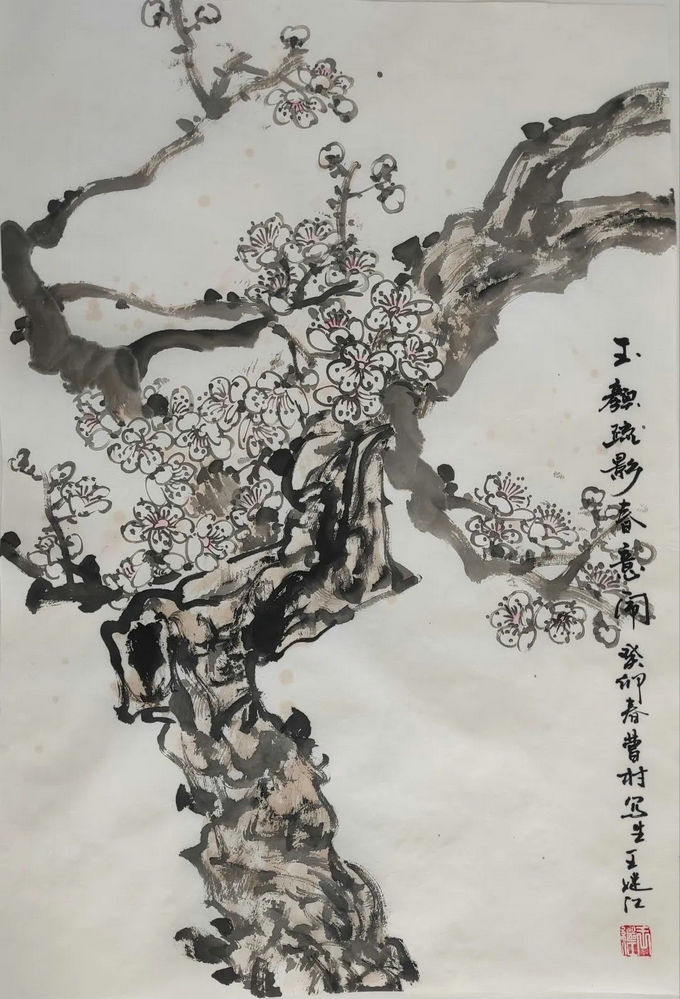 玉颜疏影春意闹 癸卯春曹村写生 王继江